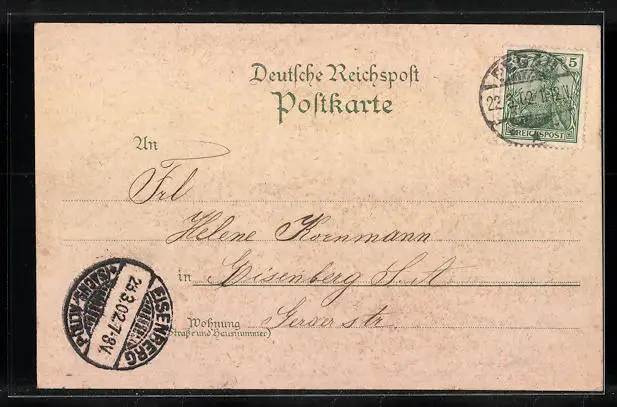 Deutsche Reichspost
Postkarte
5
PEGAU
22.3.02 11-12V
REICHSPOST
An
Frl
Helene Kornmann
in Eisenberg S. A
Geraer str.
Wohnung
(Straße und Hausnummer)
EISENBERG
23.3.02.7-8V.
(SACHS.-ALTB.)